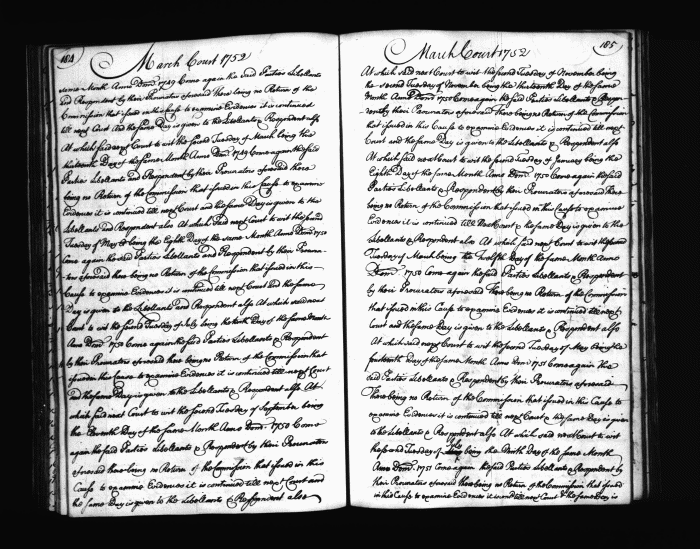 184
March Court 1752
same Month Anno Domi 1749 Come again the said Parties Libellants
and Respondent by their Procurators aforesaid there being no Return of the
Commission that issued in this Cause to examine Evidences it is continued
till next Court and the same Day is given to the Libellants & Respondent also
At which said next Court to wit the second Tuesday of March being the
thirteenth Day of the same Month Anno Domi 1749 Come again the said
Parties Libellants and Respondent by their Procurators aforesaid there
being no Return of the Commission that issued in this Cause to examine
Evidences it is continued till next Court and the same Day is given to the
Libellants and Respondent also At which said next Court to wit the second
Tuesday of May being the Eighth Day of the same Month Anno Domi 1750
Come again the said Parties Libellants and Respondent by their Procura-
tors aforesaid there being no Return of the Commission that issued in this
Cause to examine Evidences it is continued till next Court and the same
Day is given to the Libellants and Respondent also At which said next
Court to wit the second Tuesday of July being the tenth Day of the same Month
Anno Domi 1750 Come again the said Parties Libellants & Respondent
by their Procurators aforesaid there being no Return of the Commission that
issued in this Cause to examine Evidences it is continued till next Court
and the same Day is given to the Libellants & Respondent also At
which said next Court to wit the second Tuesday of September being
the Eleventh Day of the same Month Anno Domi 1750 Come
again the said Parties Libellants & Respondent by their Procurators
aforesaid there being no Return of the Commission that issued in this
Cause to examine Evidences it is continued till next Court and
the same Day is given to the Libellants & Respondent also
185
March Court 1752
At which said next Court to wit the second Tuesday of November being
the second Tuesday of November being the thirteenth Day of the same
Month Anno Domi 1750 Come again the said Parties Libellants & Respon-
dent by their Procurators aforesaid there being no Return of the Commission
that issued in this Cause to examine Evidences it is continued till next
Court and the same Day is given to the Libellants & Respondent also
At which said next Court to wit the second Tuesday of January being the
Eighth Day of the same Month Anno Domi 1750 Come again the said
Parties Libellants & Respondent by their Procurators aforesaid there
being no Return of the Commission that issued in this Cause to examine
Evidences it is continued till Next Court & the same Day is given to the
Libellants & Respondent also At which said next Court to wit the second
Tuesday of March being the Twelfth Day of the same Month Anno
Domi 1750 Come again the said Parties Libellants & Respondent
by their Procurators aforesaid there being no Return of the Commission
that issued in this Cause to examine Evidences it is continued till next
Court and the same Day is given to the Libellants & Respondent also
At which said next Court to wit the second Tuesday of May being the
fourteenth Day of the same Month Anno Domi 1751 Come again the
said Parties Libellants & Respondent by their Procurators aforesaid
there being no Return of the Commission that issued in this Cause to
examine Evidences it is continued till next Court & the same Day is given
to the Libellants & Respondent also At which said next Court to wit
the second Tuesday of July being the Ninth Day of the same Month
Anno Domi 1751 Come again the said Parties Libellants & Respondent by
their Procurators aforesaid there being no Return of the Commission that issued
in this Cause to examine Evidences it is contd till next Court & the same Day is